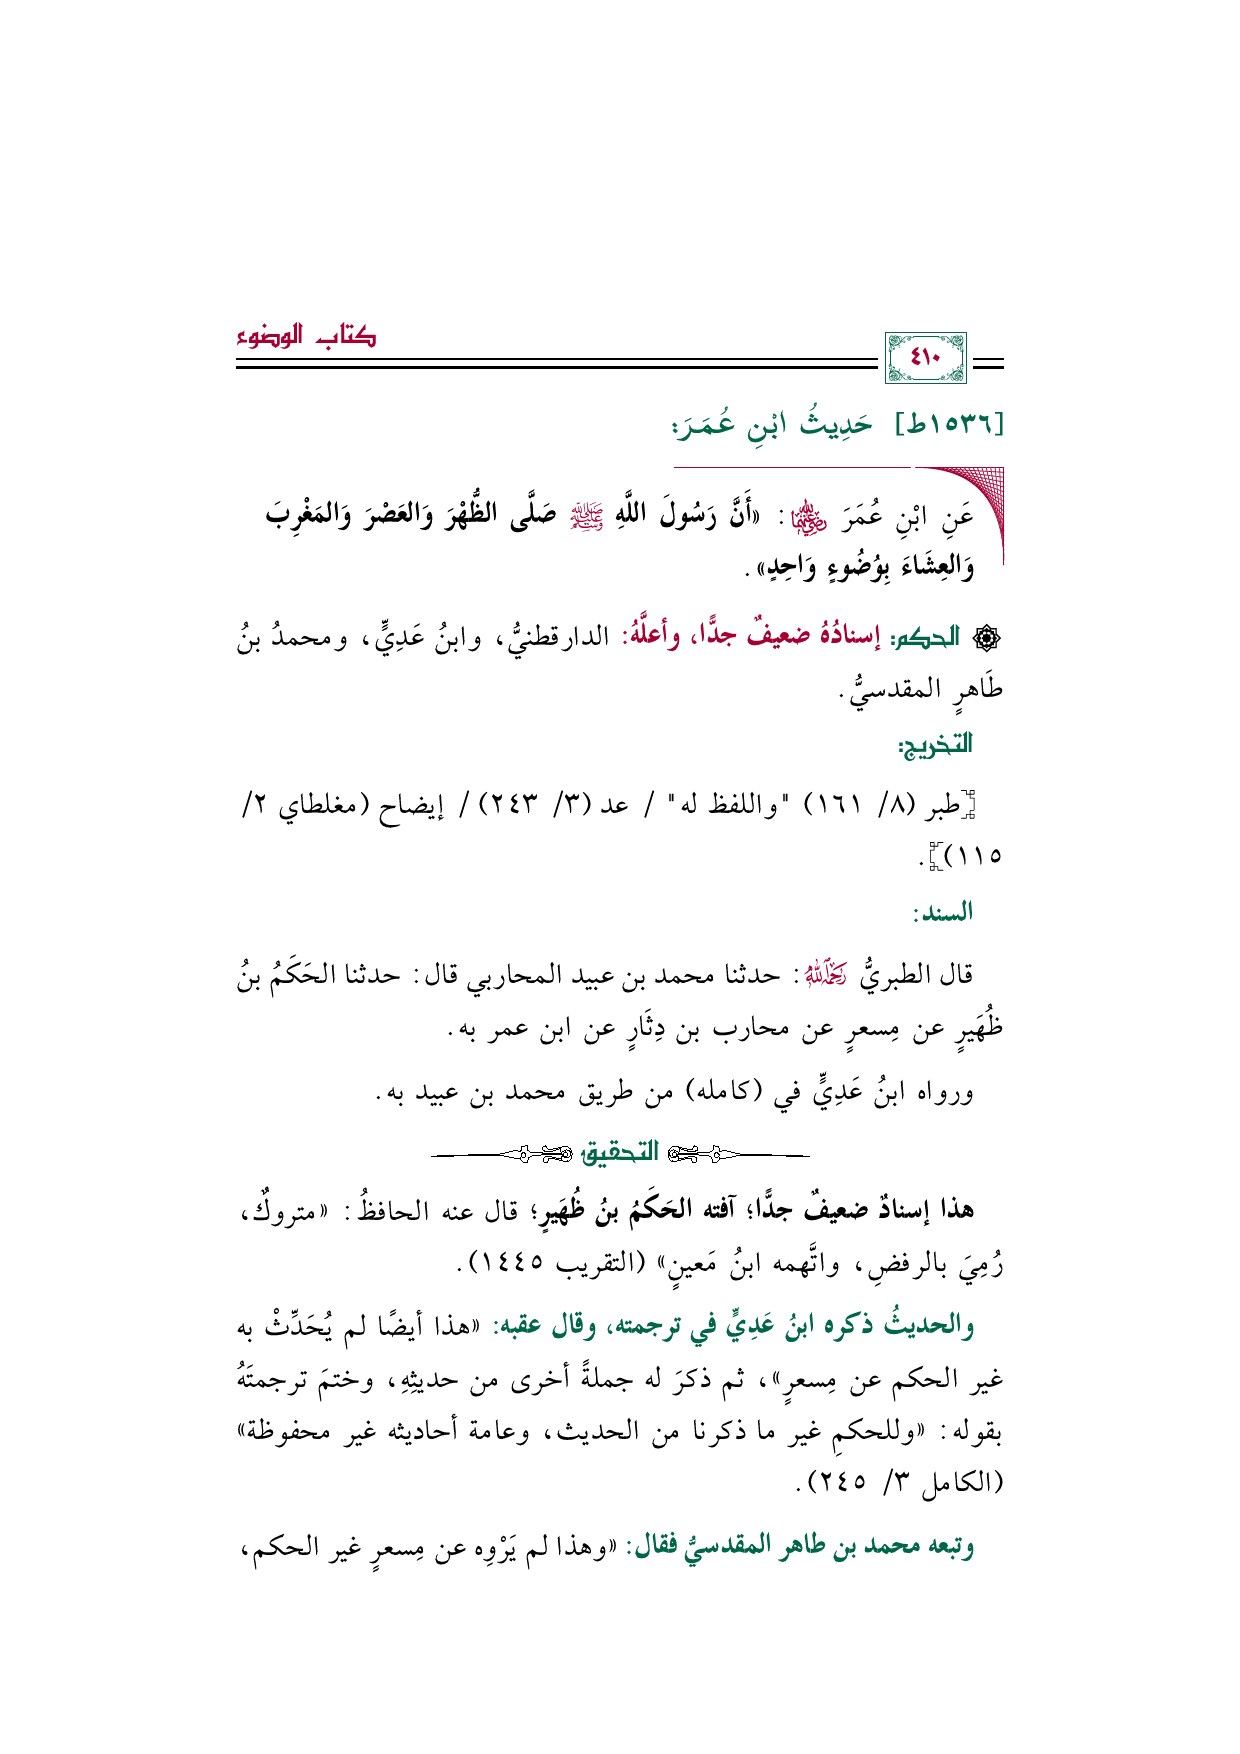 كتاب الوضوء
٤١٠
[١٥٣٦ط] حَدِيثُ ابْنِ عُمَرَ:
عَنِ ابْنِ عُمَرَ رضي الله عنهما: «أَنَّ رَسُولَ اللَّهِ ﷺ صَلَّى الظُّهْرَ وَالعَصْرَ وَالمَغْرِبَ
وَالعِشَاءَ بِوُضُوءٍ وَاحِدٍ».
الحكم: إسنادُهُ ضعيفٌ جدًّا، وأعلَّهُ: الدارقطنيُّ، وابنُ عَدِيٍّ، ومحمدُ بنُ
طَاهرٍ المقدسيُّ.
التخريج:
[طبر (٨/ ١٦١) "واللفظ له" / عد (٣/ ٢٤٣) / إيضاح (مغلطاي ٢/
١١٥)].
السند:
قال الطبريُّ رحمه الله: حدثنا محمد بن عبيد المحاربي قال: حدثنا الحَكَمُ بنُ
ظُهَيرٍ عن مِسعرٍ عن محارب بن دِثَارٍ عن ابن عمر به.
ورواه ابنُ عَدِيٍّ في (كامله) من طريق محمد بن عبيد به.
التحقيق
هذا إسنادٌ ضعيفٌ جدًّا؛ آفته الحَكَمُ بنُ ظُهَيرٍ؛ قال عنه الحافظُ: «متروكٌ،
رُمِيَ بالرفضِ، واتَّهمه ابنُ مَعينٍ» (التقريب ١٤٤٥).
والحديثُ ذكره ابنُ عَدِيٍّ في ترجمته، وقال عقبه: «هذا أيضًا لم يُحَدِّثْ به
غير الحكم عن مِسعرٍ»، ثم ذكرَ له جملةً أخرى من حديثِهِ، وختمَ ترجمتَهُ
بقوله: «وللحكمِ غير ما ذكرنا من الحديث، وعامة أحاديثه غير محفوظة»
(الكامل ٣/ ٢٤٥).
وتبعه محمد بن طاهر المقدسيُّ فقال: «وهذا لم يَرْوِه عن مِسعرٍ غير الحكم،